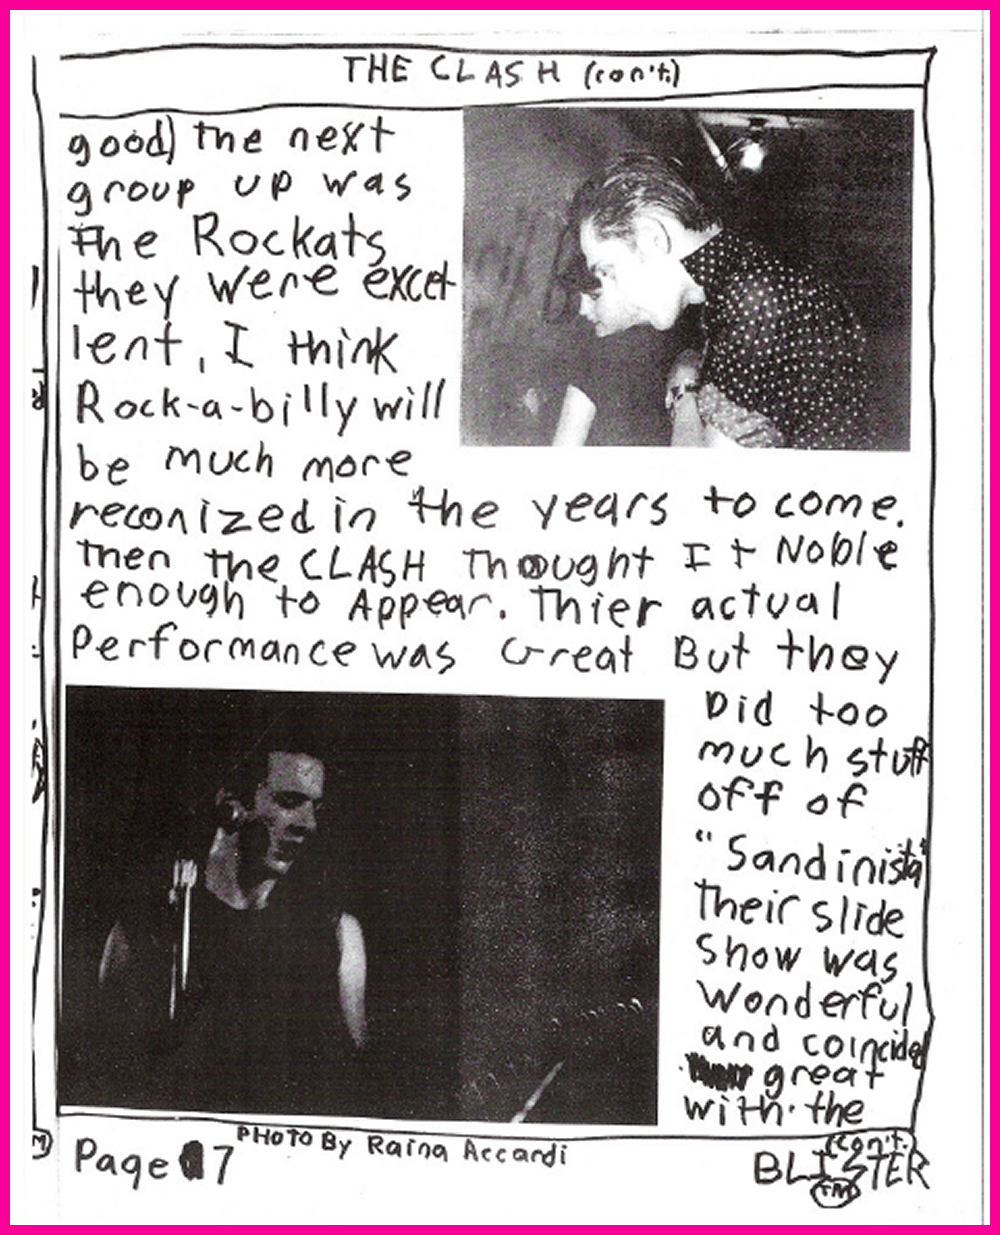 THE CLASH (con't.)
good) the next
group up was
the Rockats
they were excel
lent, I think
Rock-a-billy will
be much more
reconized in the years to come.
Then the CLASH Thought It Noble
enough to Appear. Thier actual
Performance was Great But they
Did too
much stuff
off of
"Sandinista"
their slide
show was
wonderful
and coincided
great
with the
(con't.
PHOTO By Raina Accardi
Page 7
BLISTER
TM